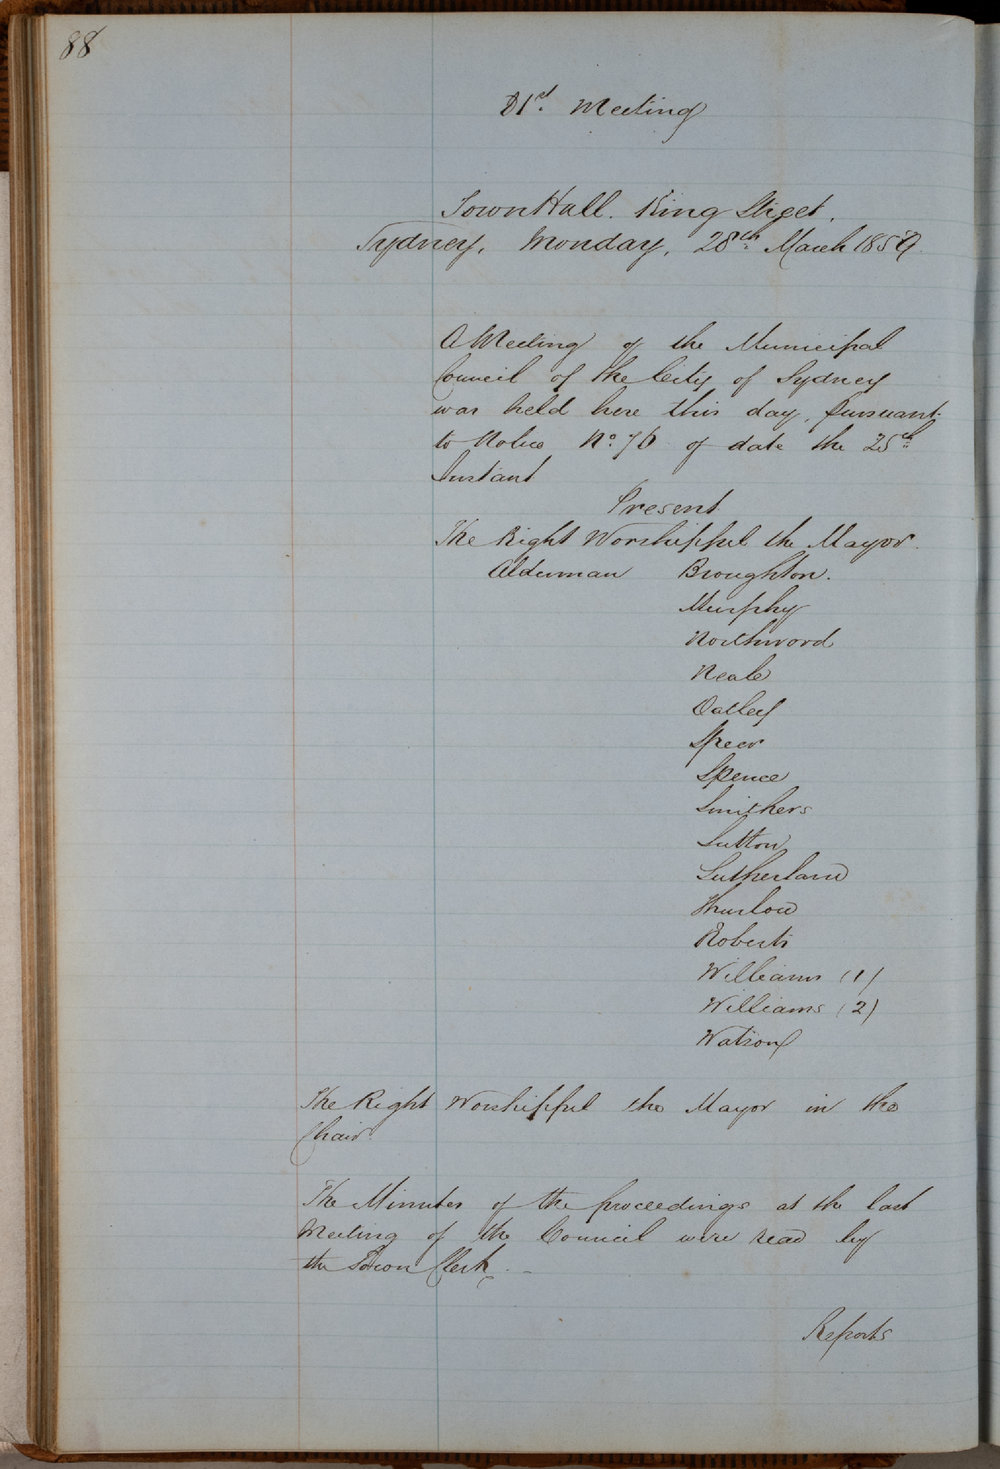 88
81st Meeting
Town Hall. King Street.
Sydney, Monday, 28th March 1859.
A Meeting of the Municipal
Council of the City of Sydney
was held here this day, Pursuant
to Notice No. 76 of date the 25th
Instant
Present
The Right Worshipful the Mayor.
Alderman Broughton.
Murphy
Northwood
Neale
Oatley
Speer
Spence
Smithers
Sutton
Sutherland
Thurlow
Roberts
Williams (1)
Williams (2)
Watson
The Right Worshipful the Mayor in the
Chair.
The Minutes of the proceedings at the last
Meeting of the Council were read by
the Town Clerk. -
Reports